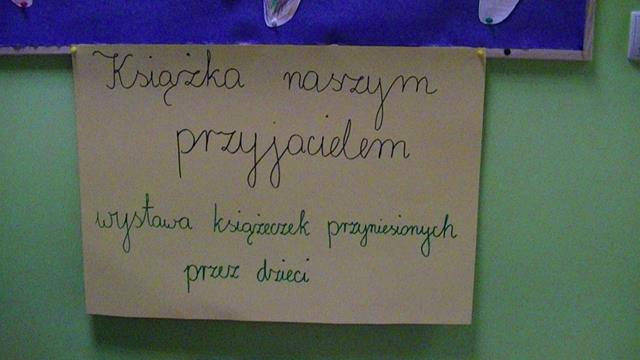 Książka naszym
przyjacielem
wystawa książeczek przyniesionych
przez dzieci